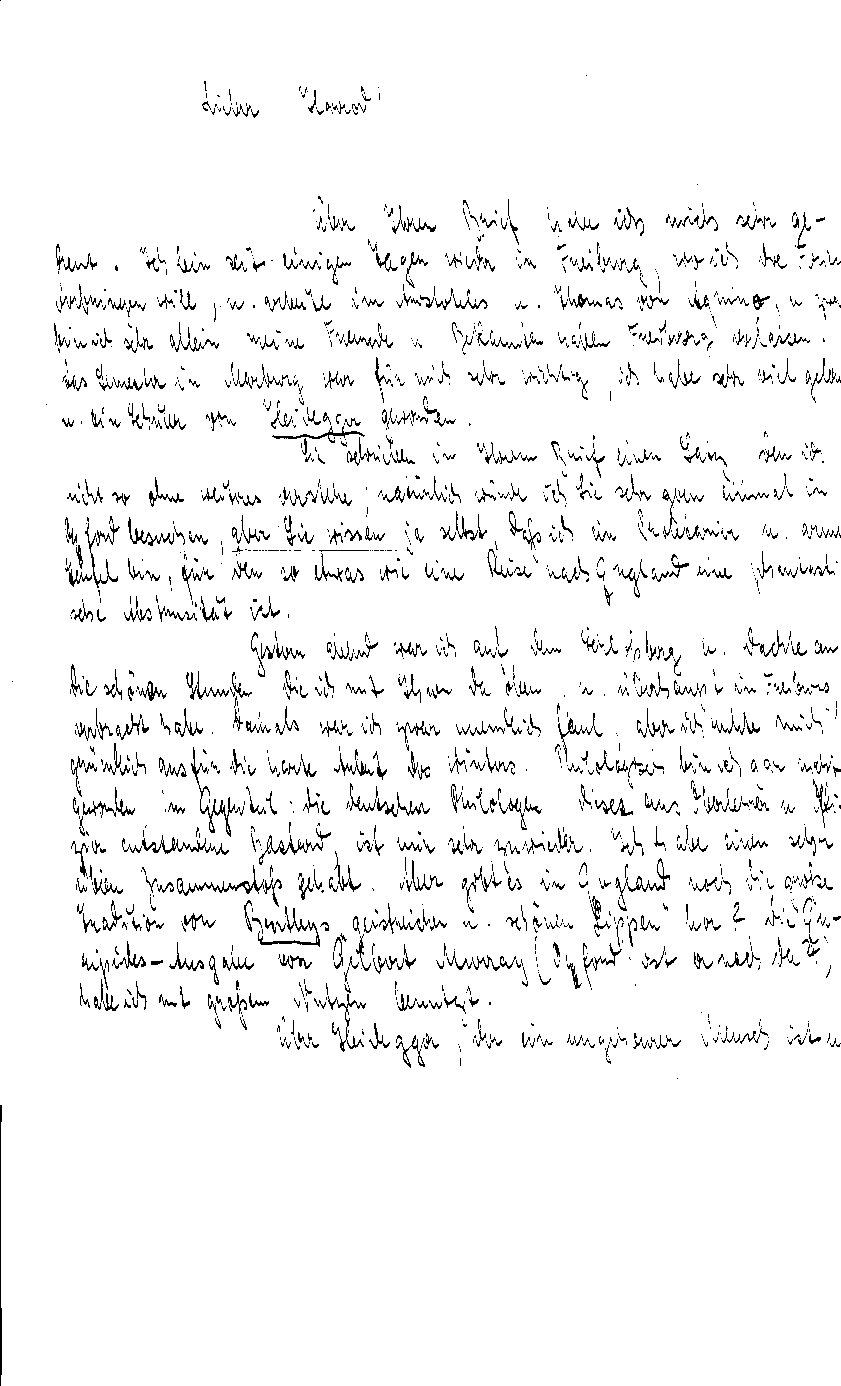 Lieber Harrod!
Über Ihren Brief habe ich mich sehr ge-
freut. Ich bin seit einigen Tagen wieder in Freiburg, wo ich die Ferien
verbringen will, u. arbeite im Aristoteles u. Thomas von Aquino, u zwar
bin ich sehr allein meine Freunde u Bekannten haben Freiburg verlassen.
Das Semester in Marburg war für mich sehr wichtig, ich habe sehr viel gelernt
u. ein Schüler von Heidegger geworden.
Sie schreiben in Ihrem Brief einen Satz den ich
nicht so ohne weiteres verstehe; natürlich würde ich Sie sehr gern einmal in
Oxford besuchen, aber Sie wissen ja selbst, daß ich ein Proletarier u. armer
Teufel bin, für den so etwas wie eine Reise nach England eine phantasti
sche Abstrusität ist.
Gestern abend war ich auf dem u. dachte an
die schönen Stunden die ich mit Ihnen da oben u. überhaupt in Freiburg
verbracht habe. Damals war ich zwar ziemlich faul, aber ich ruhte mich
gründlich aus für die harte Arbeit des Winters. Philologe bin ich gar nicht
geworden im Gegenteil: die deutschen Philologen dieses aus u
entstandene Bastard, ist mir sehr zuwieder. Ich habe einen sehr
üblen Zusammenstoß gehabt. Aber gibt es in England noch die große
Tradition von Bentleys geistreichen u. schönen Lippen her? Die Eu-
ripides-Ausgabe von Gilbert Murray (Oxford: ist er noch da?),
habe ich mit großem Nutzen benutzt.
Über Heidegger, der ein ungeheurer Mensch ist u